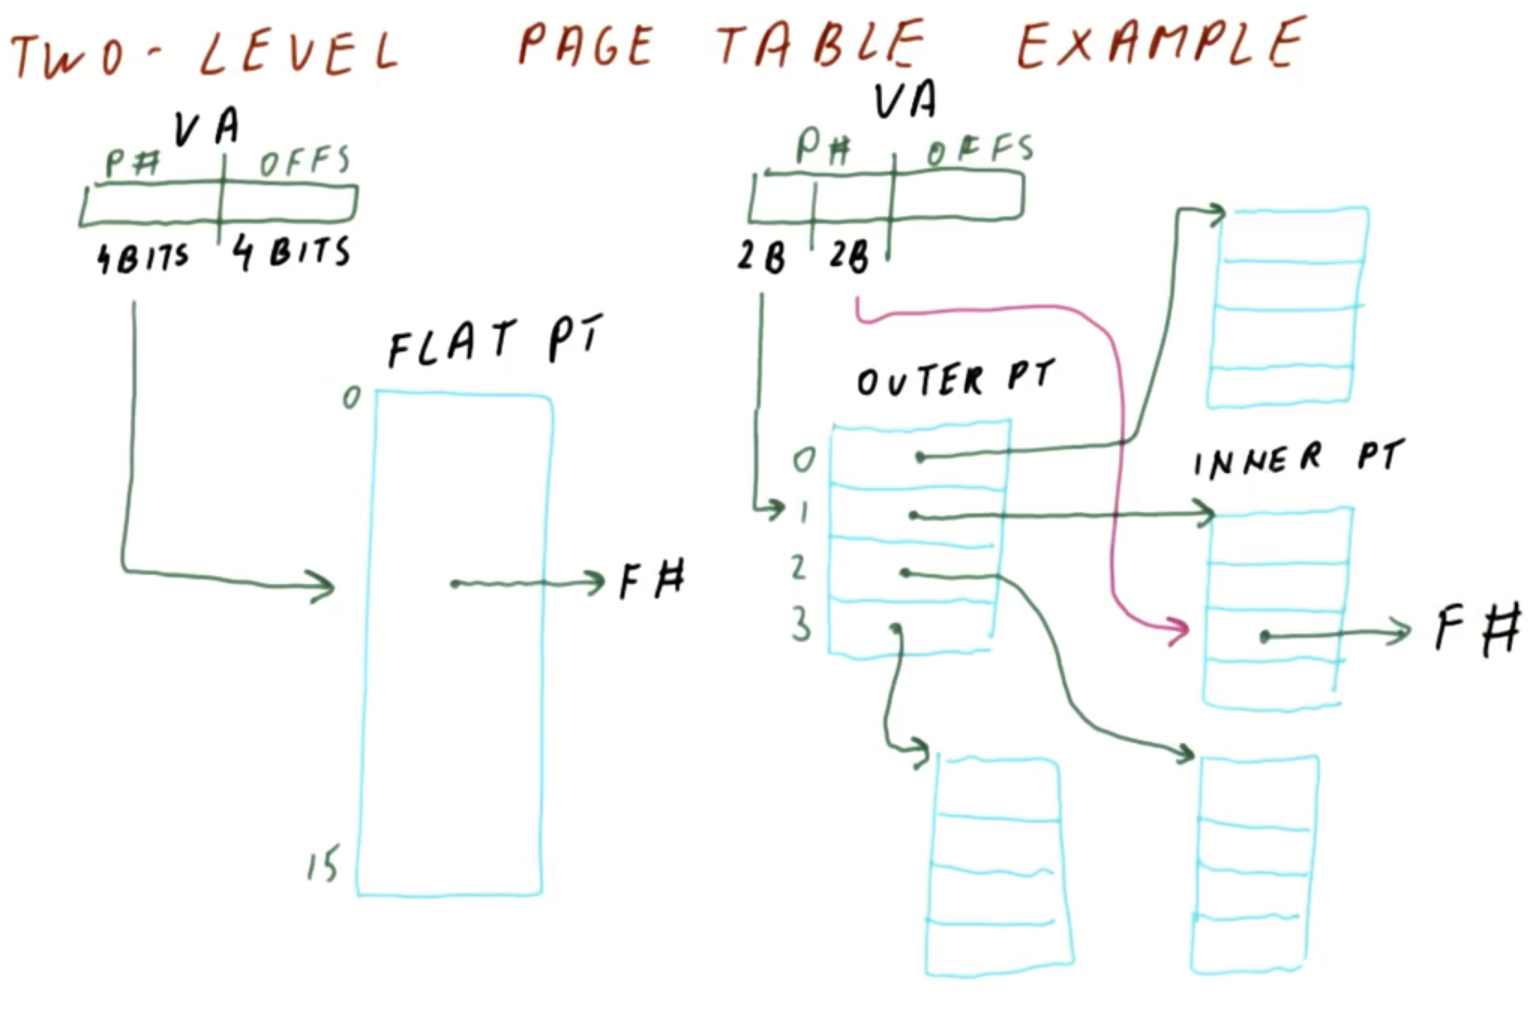 TWO-LEVEL PAGE TABLE EXAMPLE
VA
P# OFFS
4BITS 4 BITS
FLAT PT
0
F#
15
VA
P# OFFS
2B 2B
OUTER PT
0
1
2
3
INNER PT
F#